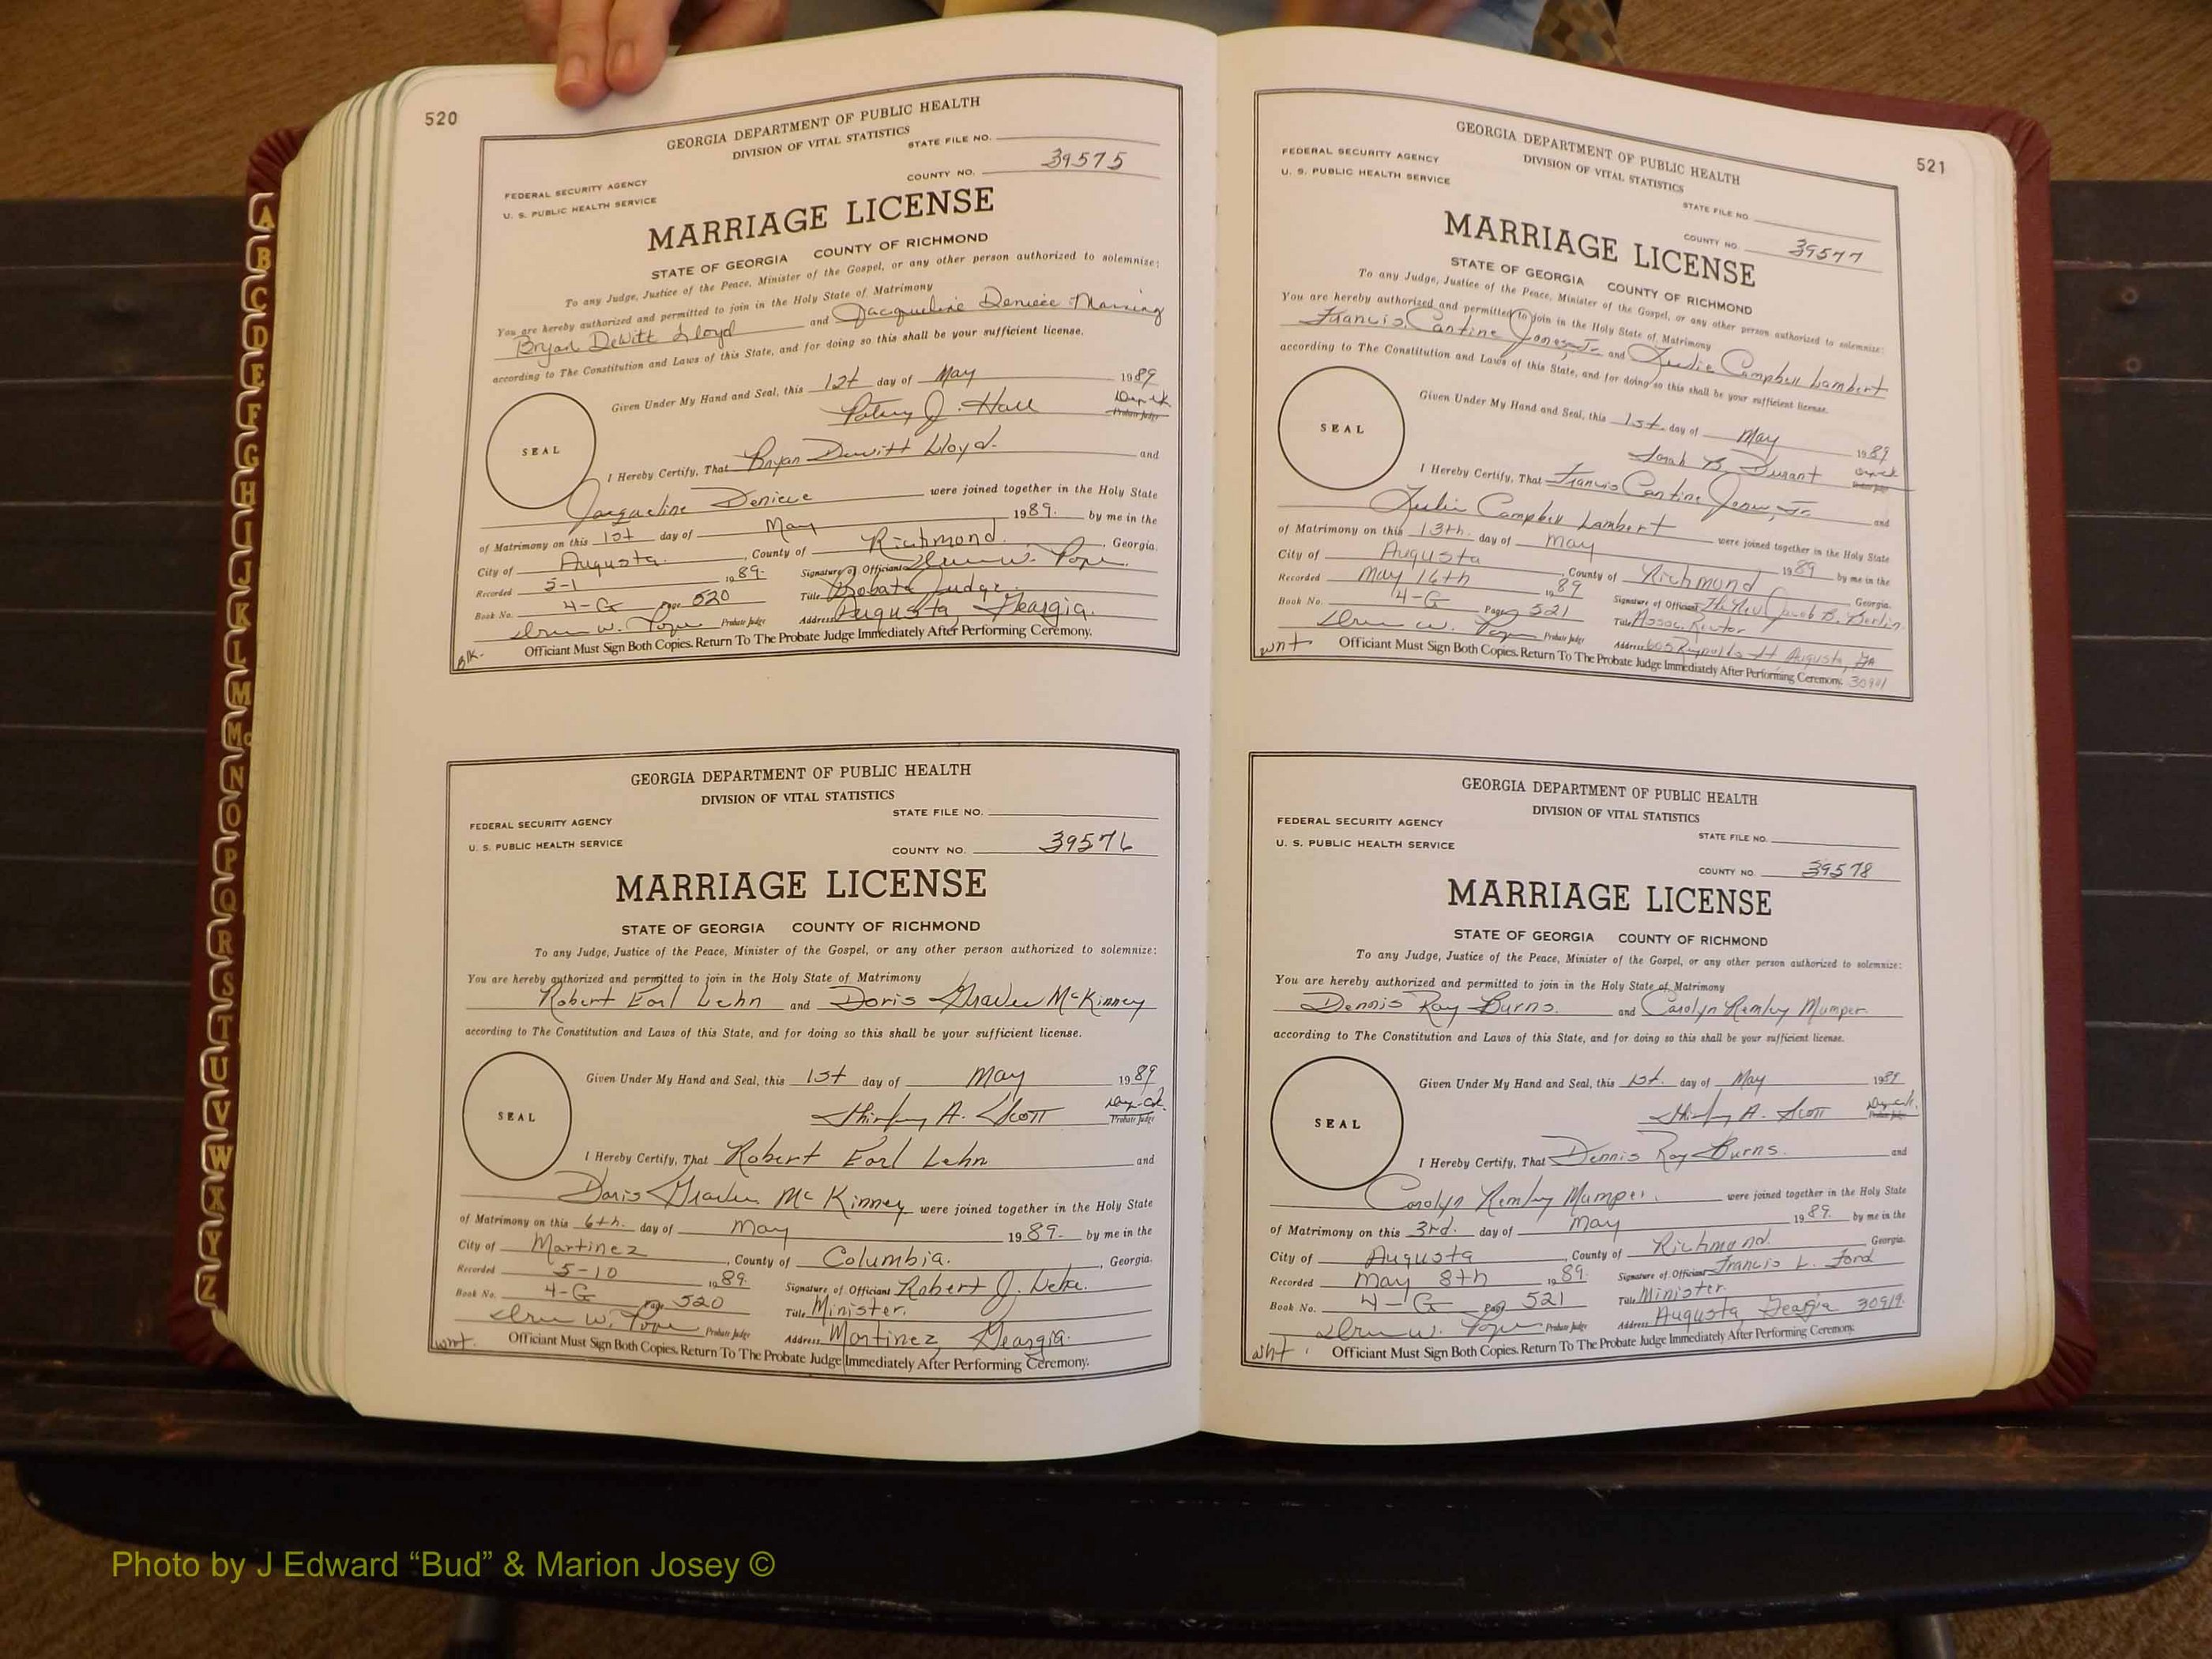 520
GEORGIA DEPARTMENT OF PUBLIC HEALTH
DIVISION OF VITAL STATISTICS
STATE FILE NO.
FEDERAL SECURITY AGENCY
U. S. PUBLIC HEALTH SERVICE
COUNTY NO. 39575
MARRIAGE LICENSE
STATE OF GEORGIA COUNTY OF RICHMOND
To any Judge, Justice of the Peace, Minister of the Gospel, or any other person authorized to solemnize:
You are hereby authorized and permitted to join in the Holy State of Matrimony
Bryan DeWitt Lloyd and Jacqueline Deniece
according to The Constitution and Laws of this State, and for doing so this shall be your sufficient license.
Given Under My Hand and Seal, this 1st day of May 1989
J. Hall Probate Judge
SEAL
I Hereby Certify, That Bryan Dewitt Lloyd and
Jacqueline Deniece were joined together in the Holy State
of Matrimony on this 1st day of May 1989. by me in the
City of Augusta. , County of Richmond. , Georgia.
Recorded 5-1 1989. Signature of Officiant W. Pope.
Book No. 4-G Page 520 Title Probate Judge.
W. Pope Probate Judge Address Augusta, Georgia.
Blk. Officiant Must Sign Both Copies. Return To The Probate Judge Immediately After Performing Ceremony.
GEORGIA DEPARTMENT OF PUBLIC HEALTH
DIVISION OF VITAL STATISTICS
STATE FILE NO.
FEDERAL SECURITY AGENCY
U. S. PUBLIC HEALTH SERVICE
COUNTY NO. 39576
MARRIAGE LICENSE
STATE OF GEORGIA COUNTY OF RICHMOND
To any Judge, Justice of the Peace, Minister of the Gospel, or any other person authorized to solemnize:
You are hereby authorized and permitted to join in the Holy State of Matrimony
Robert Earl Lehn and Doris McKinney
according to The Constitution and Laws of this State, and for doing so this shall be your sufficient license.
Given Under My Hand and Seal, this 1st day of May 1989
Shirley A. Scott Probate Judge
SEAL
I Hereby Certify, That Robert Earl Lehn and
Doris McKinney were joined together in the Holy State
of Matrimony on this 6th. day of May 1989. by me in the
City of Martinez , County of Columbia. , Georgia.
Recorded 5-10 1989. Signature of Officiant Robert J.
Book No. 4-G Page 520 Title Minister.
W. Pope Probate Judge Address Martinez, Georgia.
wht. Officiant Must Sign Both Copies. Return To The Probate Judge Immediately After Performing Ceremony.
521
GEORGIA DEPARTMENT OF PUBLIC HEALTH
DIVISION OF VITAL STATISTICS
FEDERAL SECURITY AGENCY
U. S. PUBLIC HEALTH SERVICE
STATE FILE NO
COUNTY NO. 39577
MARRIAGE LICENSE
STATE OF GEORGIA COUNTY OF RICHMOND
To any Judge, Justice of the Peace, Minister of the Gospel, or any other person authorized to solemnize:
You are hereby authorized and permitted to join in the Holy State of Matrimony
Francis Cantine Jones, Jr. and Campbell Lambert
according to The Constitution and Laws of this State, and for doing so this shall be your sufficient license.
Given Under My Hand and Seal, this 1st day of May 1989
B. Durant
SEAL
I Hereby Certify, That Francis Cantine Jones, Jr. and
Campbell Lambert were joined together in the Holy State
of Matrimony on this 13th. day of May 1989 by me in the
City of Augusta , County of Richmond Georgia.
Recorded May 16th 1989 Signature of Officiant The Rev. Jacob B.
Book No. 4-G Page 521 Title Assoc. Rector
W. Pope Probate Judge Address 605 Reynolds St Augusta, GA
wht Officiant Must Sign Both Copies. Return To The Probate Judge Immediately After Performing Ceremony. 30901
GEORGIA DEPARTMENT OF PUBLIC HEALTH
DIVISION OF VITAL STATISTICS
FEDERAL SECURITY AGENCY
STATE FILE NO.
U. S. PUBLIC HEALTH SERVICE
COUNTY NO. 39578
MARRIAGE LICENSE
STATE OF GEORGIA COUNTY OF RICHMOND
To any Judge, Justice of the Peace, Minister of the Gospel, or any other person authorized to solemnize:
You are hereby authorized and permitted to join in the Holy State of Matrimony
Dennis Ray Burns. and Carolyn Remley Mumper.
according to The Constitution and Laws of this State, and for doing so this shall be your sufficient license.
Given Under My Hand and Seal, this 1st. day of May 1989
Shirley A. Scott Probate Judge
SEAL
I Hereby Certify, That Dennis Ray Burns. and
Carolyn Remley Mumper. were joined together in the Holy State
of Matrimony on this 3rd. day of May 1989. by me in the
City of Augusta , County of Richmond. Georgia.
Recorded May 8th 1989. Signature of Officiant Francis L. Ford
Book No. 4-G Page 521 Title Minister.
W. Pope Probate Judge Address Augusta, Georgia 30919.
wht Officiant Must Sign Both Copies. Return To The Probate Judge Immediately After Performing Ceremony.
A
B
C
D
E
F
G
H
I
J
K
L
M
Mc
N
O
P
Q
R
S
T
U
V
W
X
Y
Z
Photo by J Edward “Bud” & Marion Josey ©